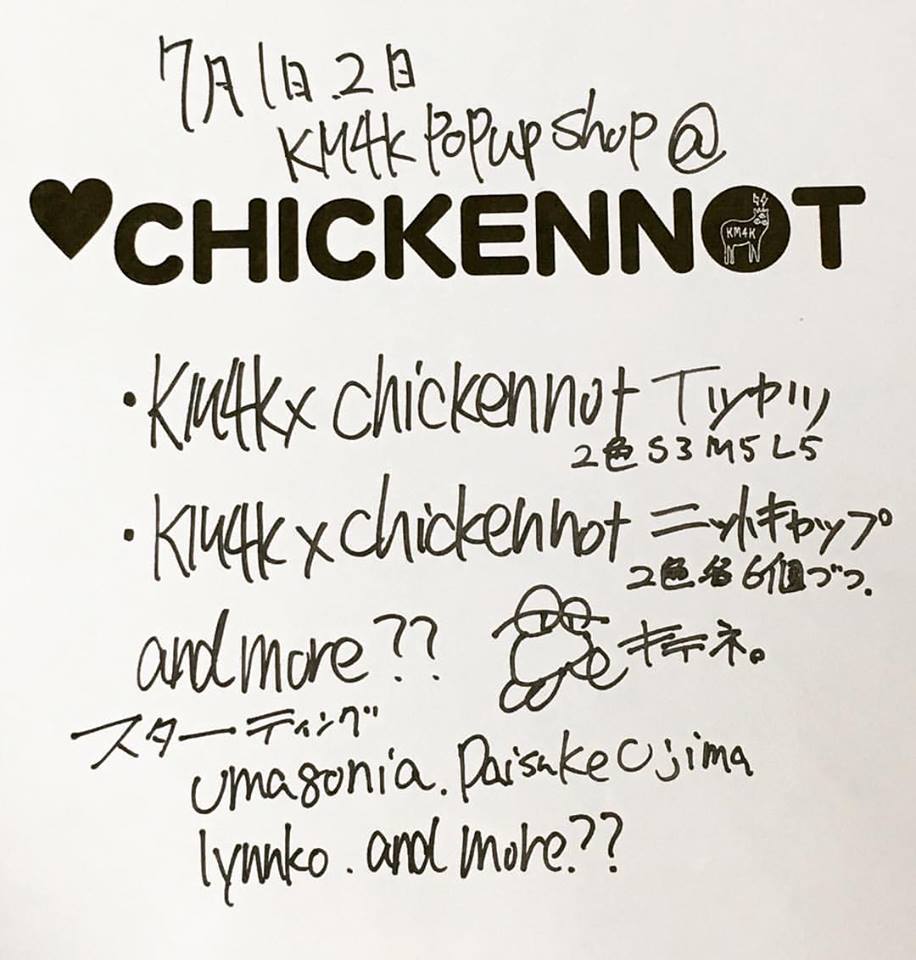 7月1日.2日
KM4K PoPup shop @
♥CHICKENNOT
KM4K
・KM4K x chickennot Tシャツ
2色 S3 M5 L5
・KM4K x chickennot ニットキャップ
2色各6個づつ.
and more??
キテネ。
スターティング
umasonia. Daisuke Ujima
lynnko. and more.??